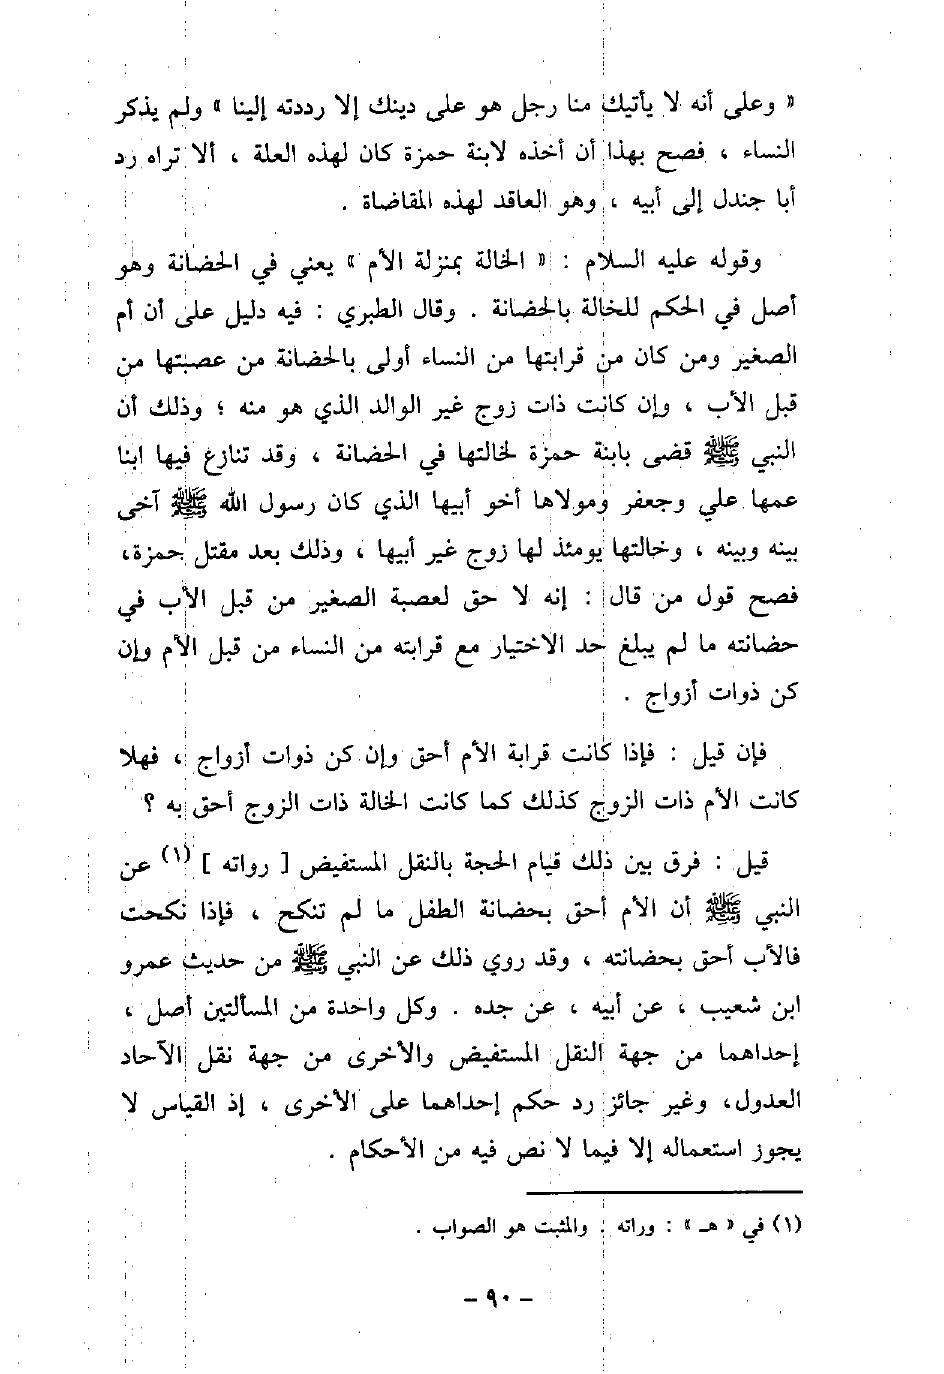 « وعلى أنه لا يأتيك منا رجل هو على دينك إلا رددته إلينا » ولم يذكر
النساء ، فصح بهذا أن أخذه لابنة حمزة كان لهذه العلة ، ألا تراه رد
أبا جندل إلى أبيه ، وهو العاقد لهذه المقاضاة .
وقوله عليه السلام : « الخالة بمنزلة الأم » يعني في الحضانة وهو
أصل في الحكم للخالة بالحضانة . وقال الطبري : فيه دليل على أن أم
الصغير ومن كان من قرابتها من النساء أولى بالحضانة من عصبتها من
قبل الأب ، وإن كانت ذات زوج غير الوالد الذي هو منه ؛ وذلك أن
النبي ﷺ قضى بابنة حمزة لخالتها في الحضانة ، وقد تنازع فيها ابنا
عمها علي وجعفر ومولاها أخو أبيها الذي كان رسول الله ﷺ آخى
بينه وبينه ، وخالتها يومئذ لها زوج غير أبيها ، وذلك بعد مقتل حمزة،
فصح قول من قال : إنه لا حق لعصبة الصغير من قبل الأب في
حضانته ما لم يبلغ حد الاختيار مع قرابته من النساء من قبل الأم وإن
كن ذوات أزواج .
فإن قيل : فإذا كانت قرابة الأم أحق وإن كن ذوات أزواج ، فهلا
كانت الأم ذات الزوج كذلك كما كانت الخالة ذات الزوج أحق به ؟
قيل : فرق بين ذلك قيام الحجة بالنقل المستفيض [ رواته ] (١) عن
النبي ﷺ أن الأم أحق بحضانة الطفل ما لم تنكح ، فإذا نكحت
فالأب أحق بحضانته ، وقد روي ذلك عن النبي ﷺ من حديث عمرو
ابن شعيب ، عن أبيه ، عن جده . وكل واحدة من المسألتين أصل ،
إحداهما من جهة النقل المستفيض والأخرى من جهة نقل الآحاد
العدول، وغير جائز رد حكم إحداهما على الأخرى ، إذ القياس لا
يجوز استعماله إلا فيما لا نص فيه من الأحكام .
(١) في « هـ » : وراته . والمثبت هو الصواب .
- ٩٠ -